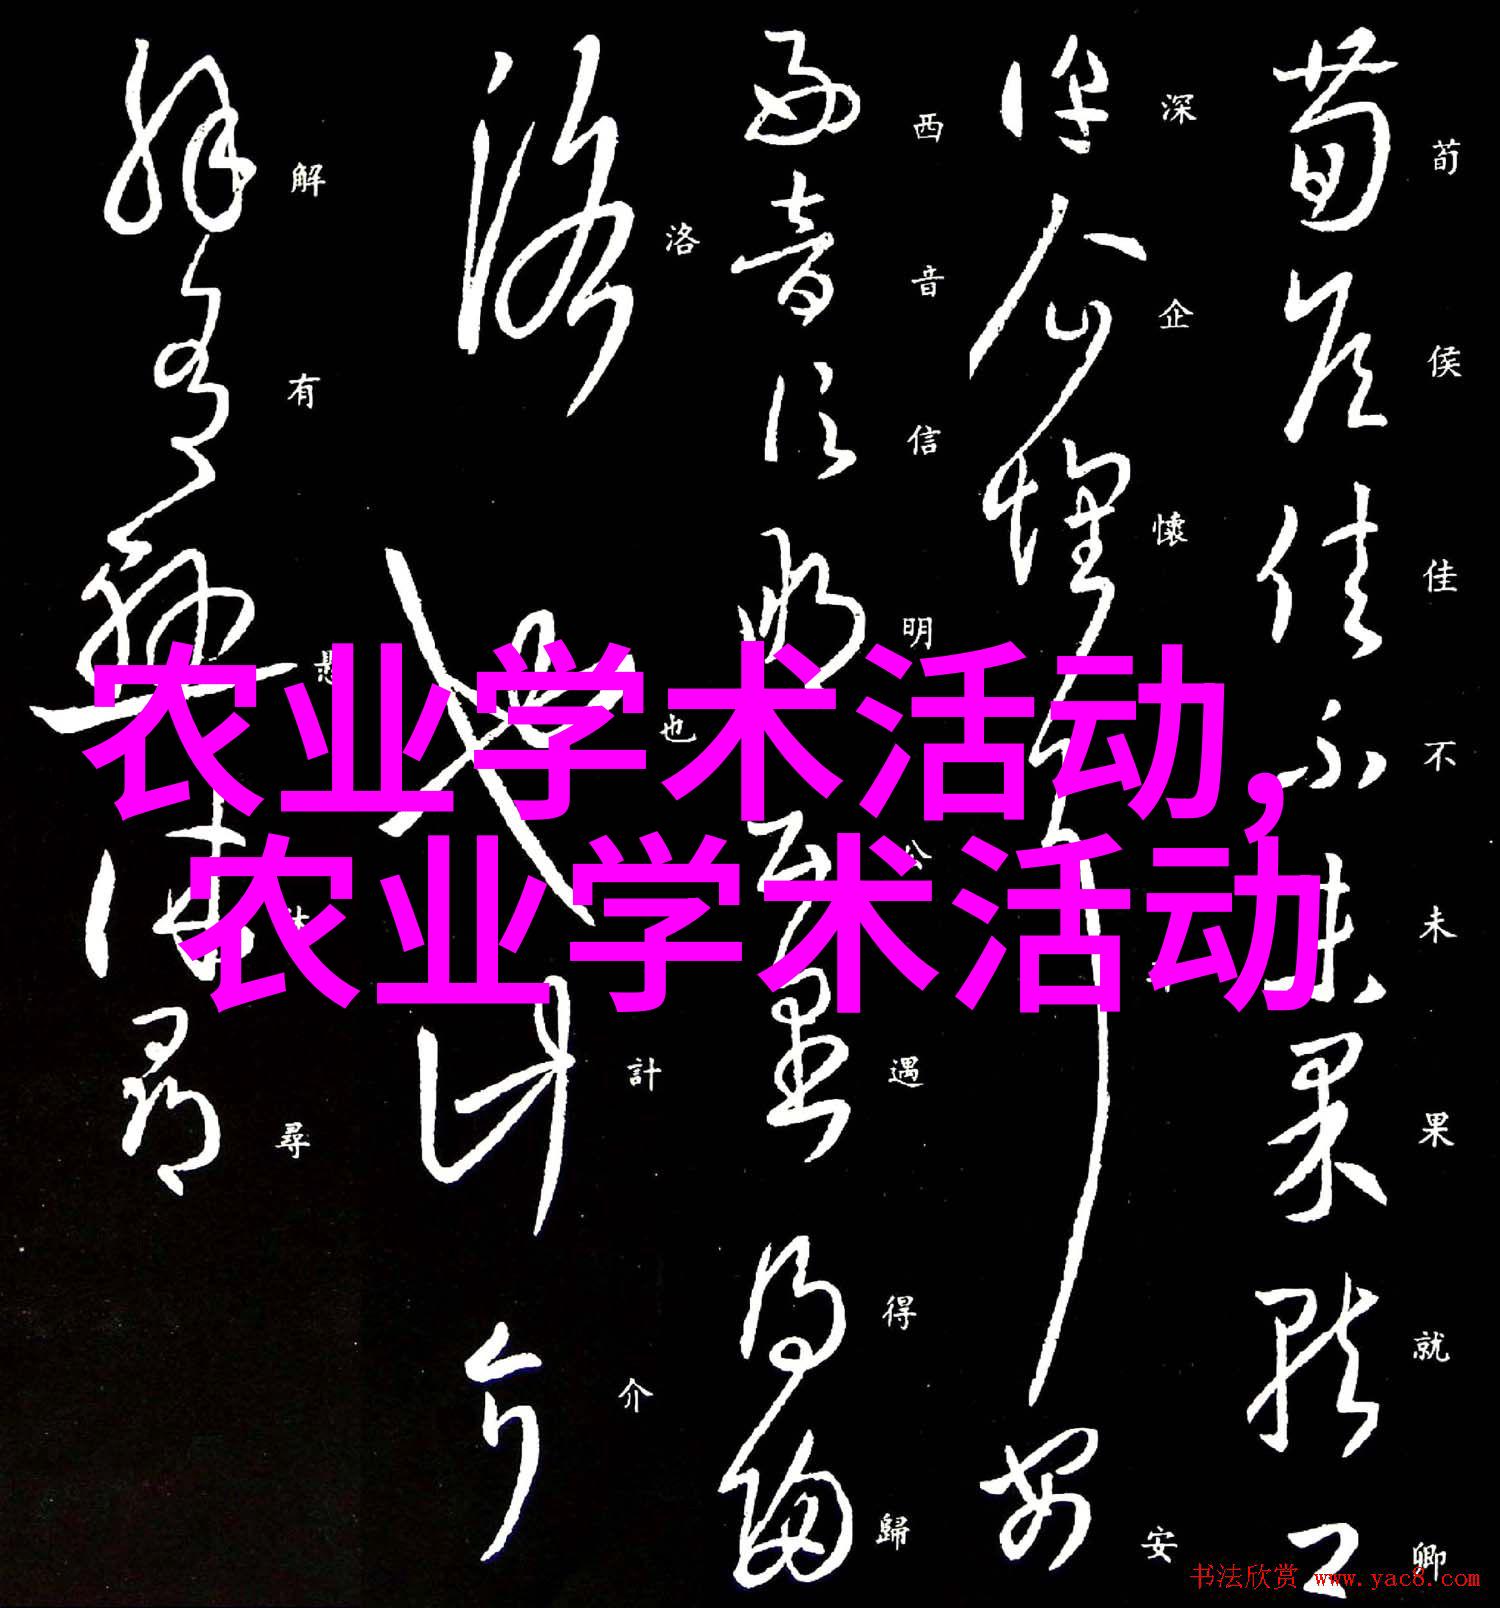 荀侯佳不未果就卿
深企懷安
西音信明公遇得歸
洛也計介
解有尋
农业学术活动,
农业学术活动
书法欣赏 www.yac8.com